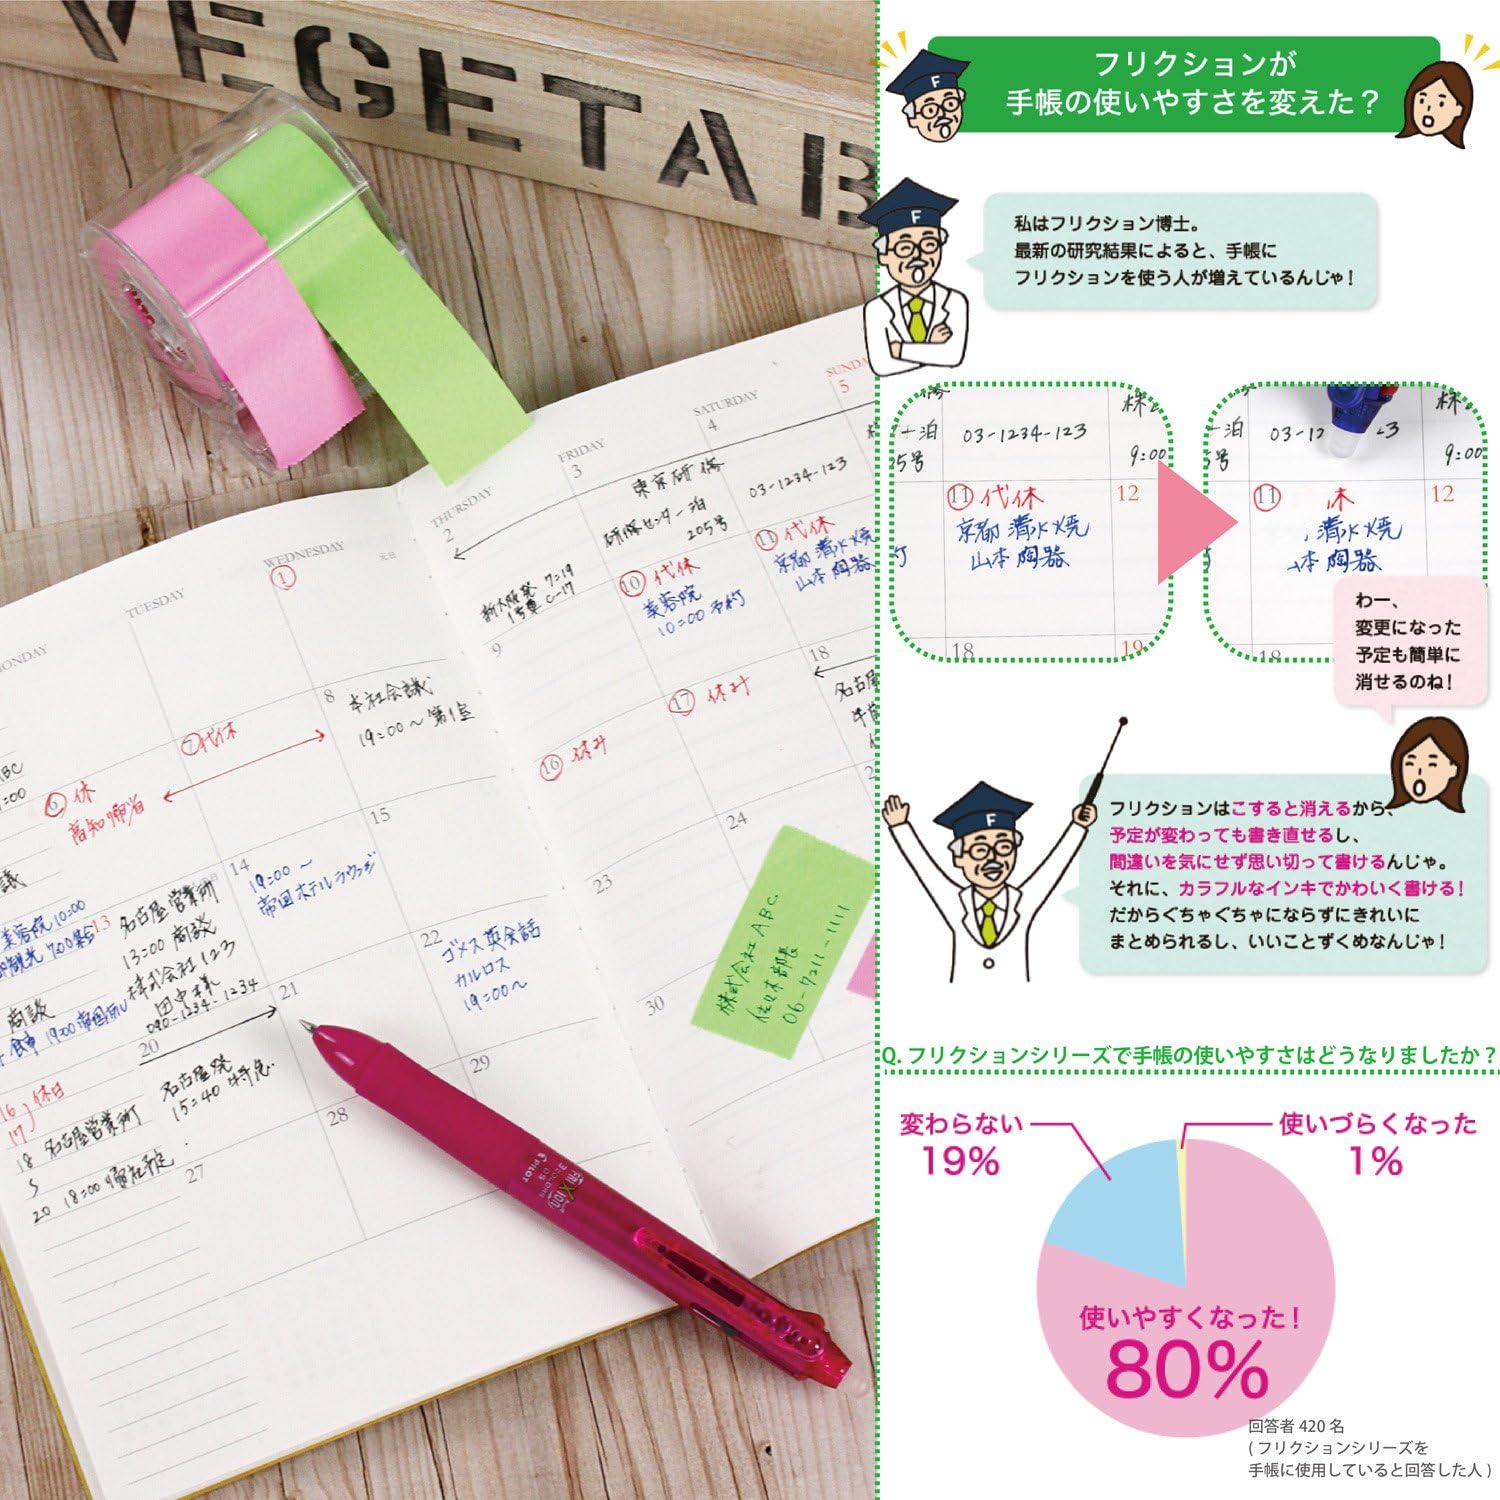 VEGETAB
フリクションが
手帳の使いやすさを変えた？
F
F
私はフリクション博士。
最新の研究結果によると、手帳に
フリクションを使う人が増えているんじゃ！
泊
03-1234-123
5号
9:00
⑪ 代休
12
京都 清水焼
山本 陶器
18
19
泊
03-12
3
5号
9:00
⑪ 休
12
清水焼
本 陶器
18
わー、
変更になった
予定も簡単に
消せるのね！
F
フリクションはこすると消えるから、
予定が変わっても書き直せるし、
間違いを気にせず思い切って書けるんじゃ。
それに、カラフルなインキでかわいく書ける！
だからぐちゃぐちゃにならずにきれいに
まとめられるし、いいことずくめなんじゃ！
Q. フリクションシリーズで手帳の使いやすさはどうなりましたか？
変わらない
19%
使いづらくなった
1%
使いやすくなった！
80%
回答者 420 名
( フリクションシリーズを
手帳に使用していると回答した人 )
MONDAY
TUESDAY
WEDNESDAY
元日
①
THURSDAY
2
FRIDAY
3
SATURDAY
4
SUNDA
5
東京研修
研修センター泊
205号
03-1234-123
新大阪発 7:19
1号車 C-17
⑩ 代休
美容院
10:00 予約
⑪ 代休
京都 清水焼
山本 陶器
ABC
⑥ 休
高知帰省
⑦代休
8
本社会議
19:00～ 第1室
9
⑯ 休み
⑰ 休み
18
名古屋
午前
議
美容院 10:00
13
名古屋営業所
13:00 商談
株式会社 123
田中様
090-1234-1234
14
19:00～
帝国ホテルラウンジ
15
22
ゴメス英会話
カルロス
19:00～
23
24
株式会社 ABC
佐々木部長
06-7211-1111
商談
16
17
休日
18 名古屋営業所
20 18:00 帰社予定
20
名古屋発
15:40 特急
21
27
28
29
30
FRIXION
3COLORS
05
PILOT